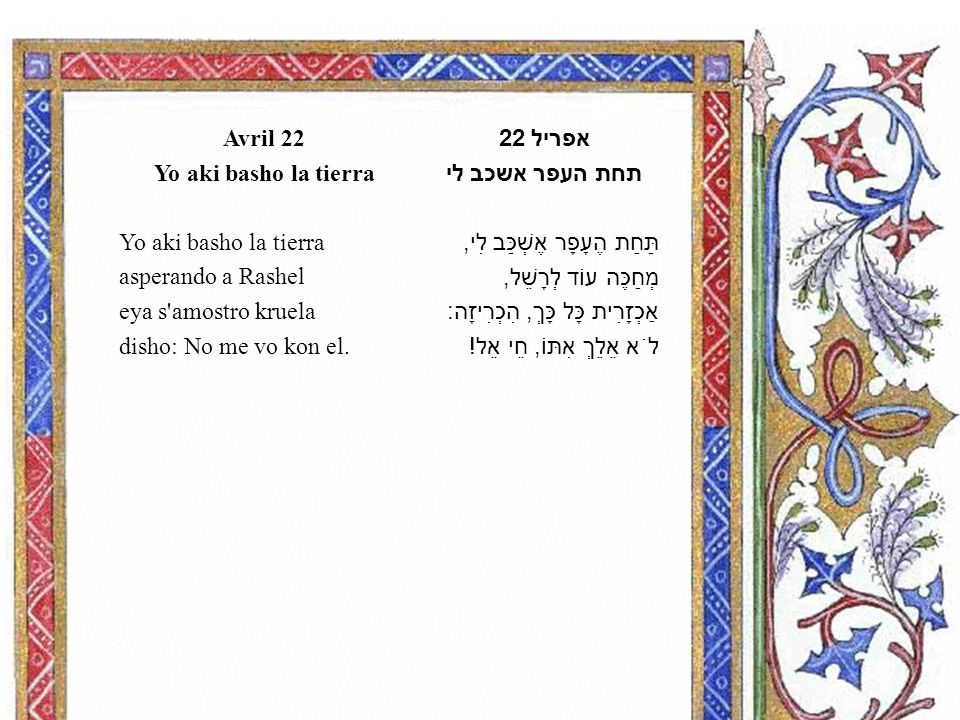 Avril 22
Yo aki basho la tierra
Yo aki basho la tierra
asperando a Rashel
eya s'amostro kruela
disho: No me vo kon el.
אפריל 22
תחת העפר אשכב לי
תַּחַת הֶעָפָר אֶשְׁכַּב לִי,
מְחַכֶּה עוֹד לְרָשֵׁל,
אַכְזָרִית כָּל כָּךְ, הִכְרִיזָה:
לֹא אֵלֵךְ אִתּוֹ, חֵי אֵל!